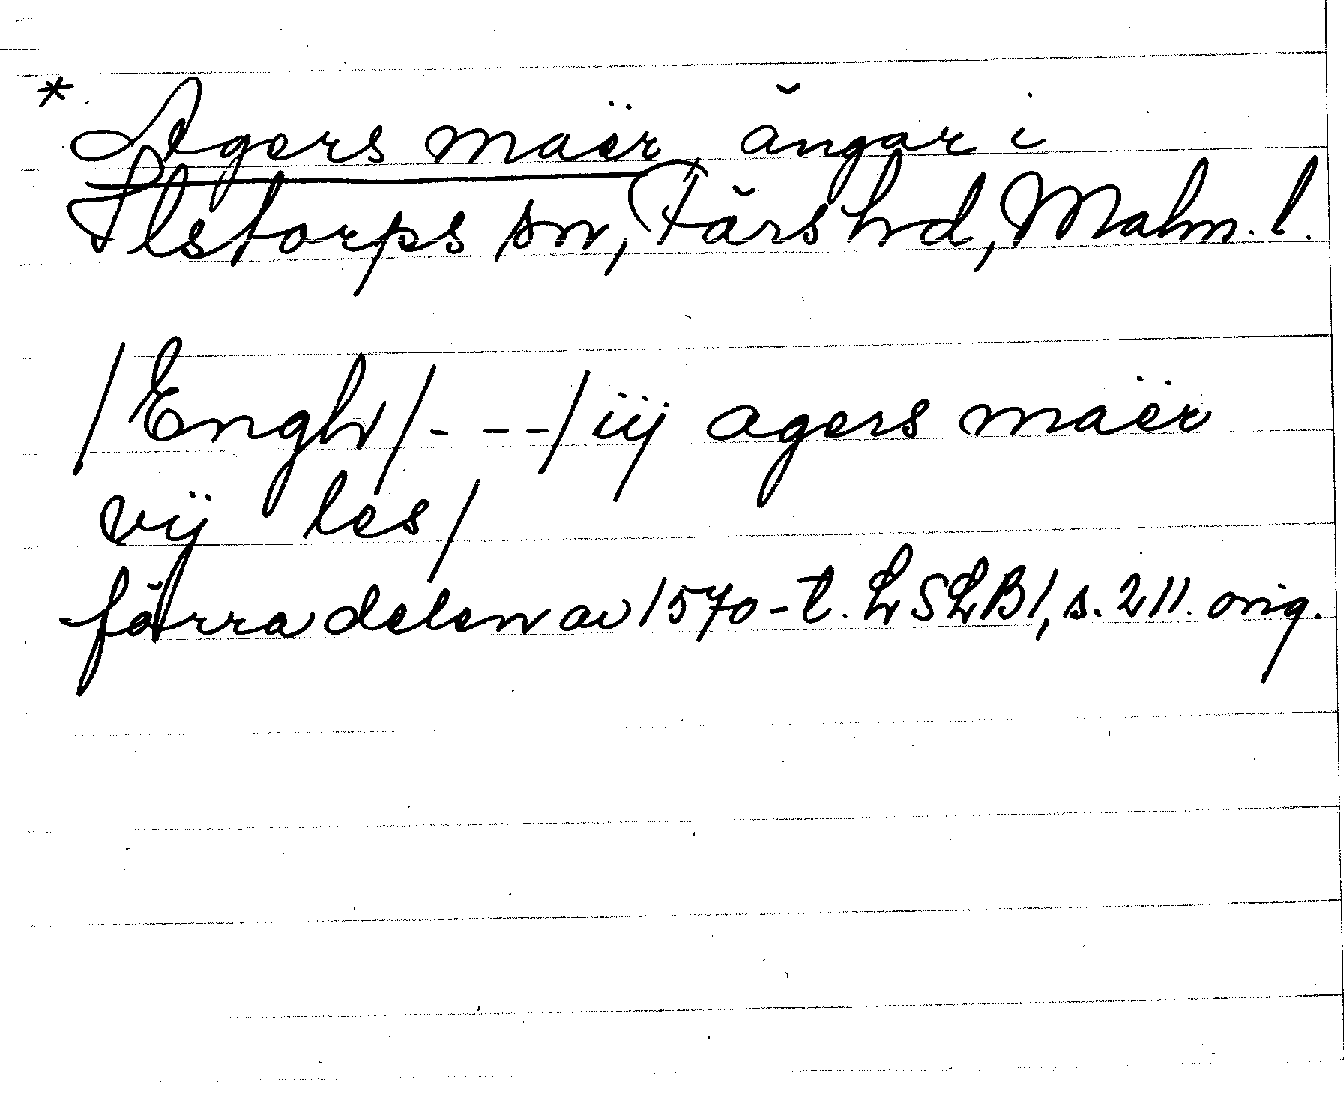 * Agers maër, ängar i
Ilstorps sn, Färs hd, Malm. l.
/Engh/---/iij agers maër
vij les/
förra delen av 1570-t. LSLB1, s. 211. orig.